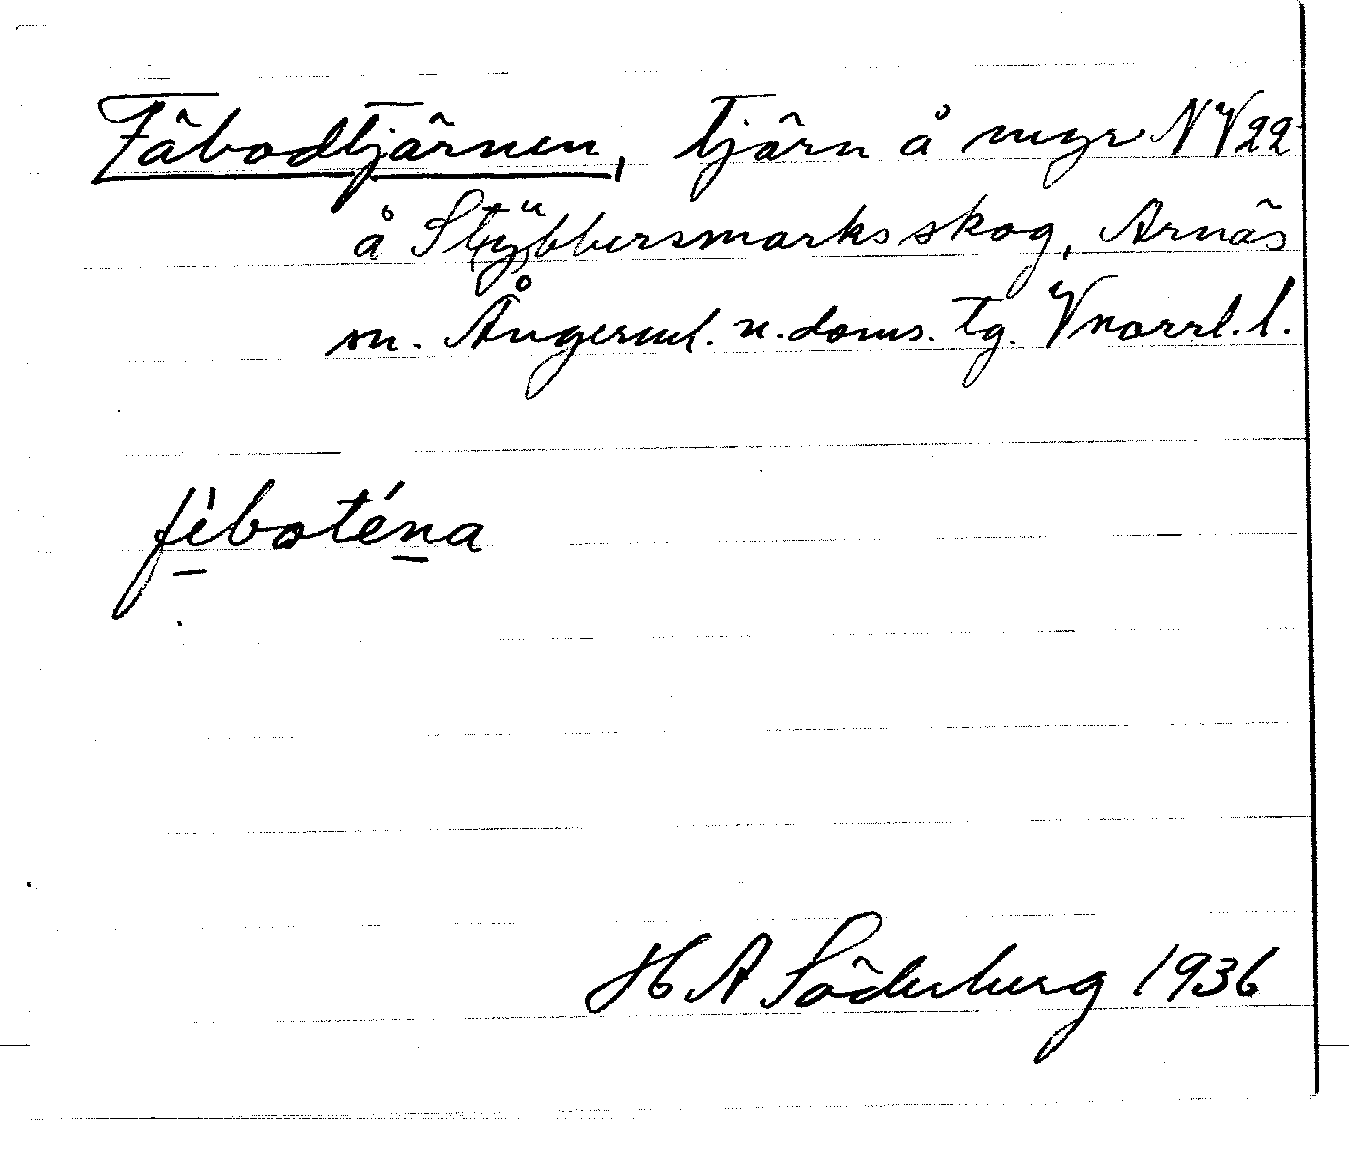 Fäbodtjärnen, tjärn å myr NV22
å St(y)ubbersmarks skog, Arnäs
sn. Ångerml. n. doms. tg. Vnorrl. l.
fèboténa
H A Söderberg 1936